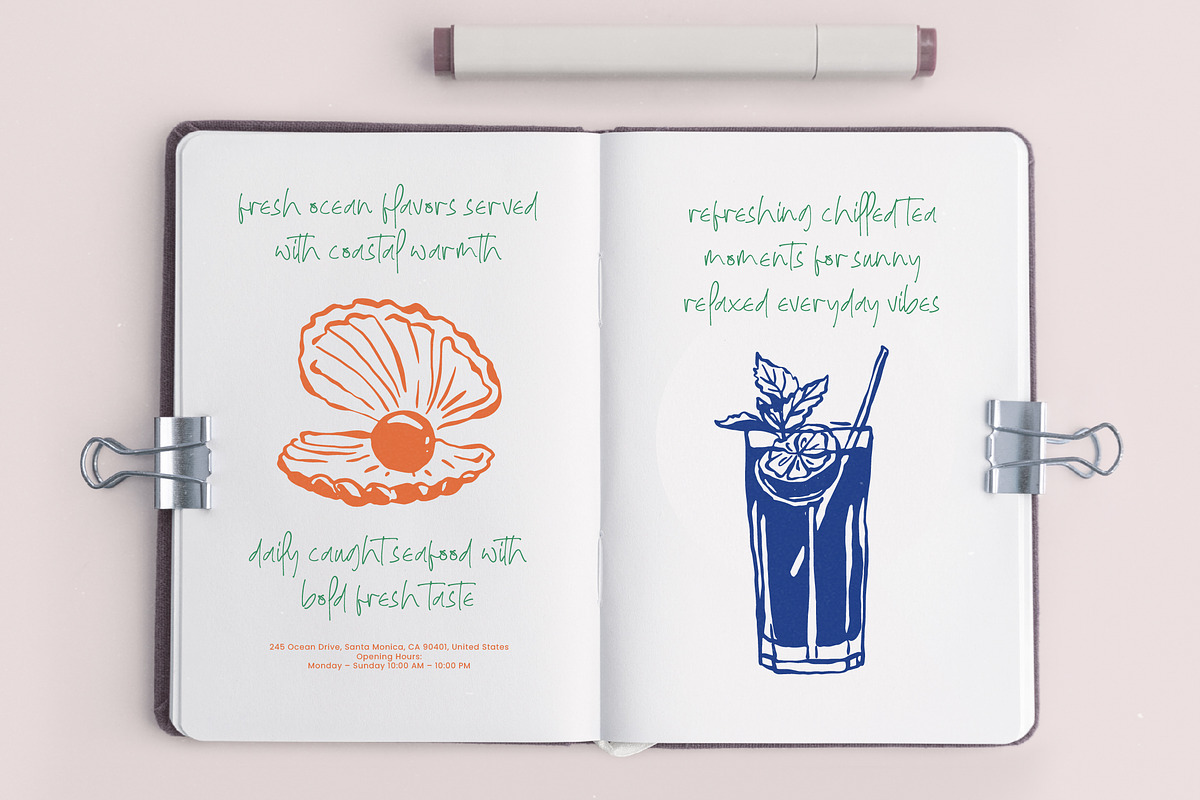 fresh ocean flavors served
with coastal warmth
daily caught seafood with
bold fresh taste
245 Ocean Drive, Santa Monica, CA 90401, United States
Opening Hours:
Monday – Sunday 10:00 AM – 10:00 PM
refreshing chilled tea
moments for sunny
relaxed everyday vibes